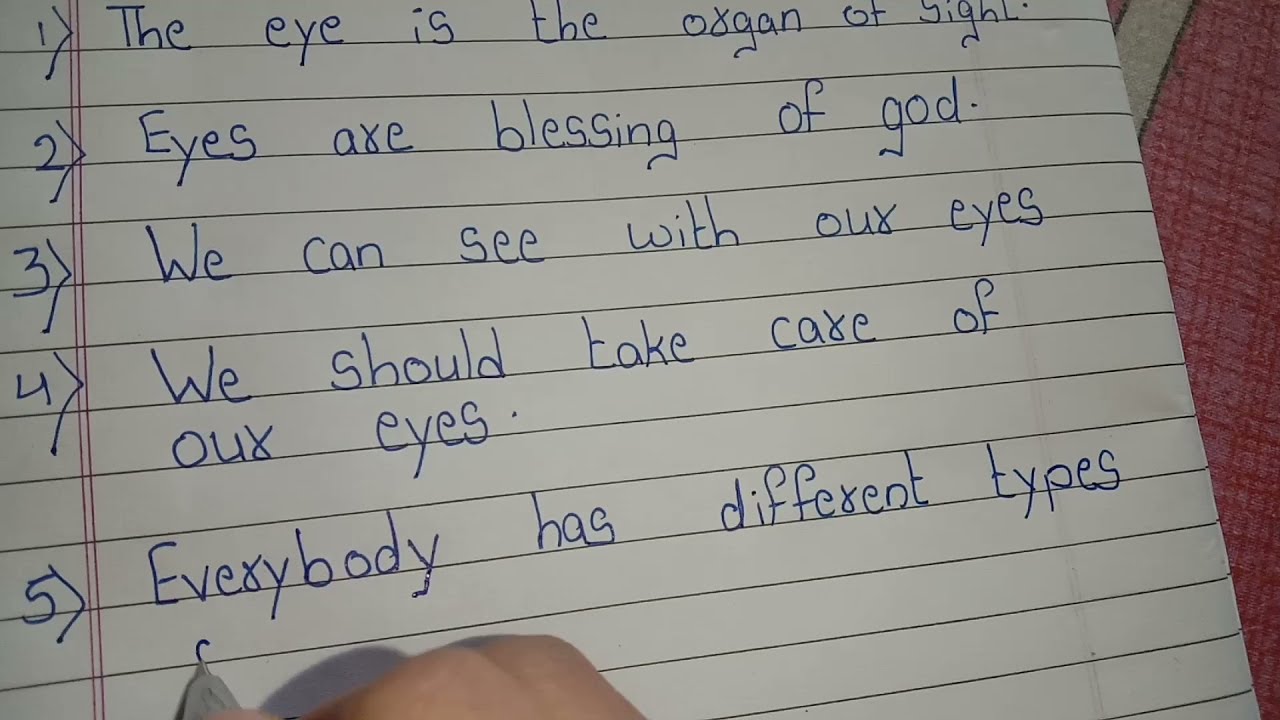 1) The eye is the organ of sight.
2) Eyes are blessing of god.
3) We can see with our eyes
4) We should take care of
our eyes.
5) Everybody has different types